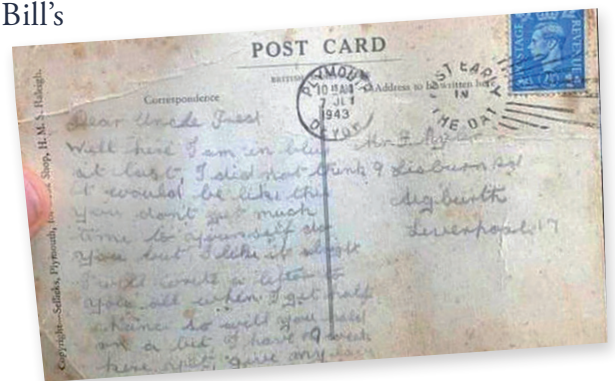 Bill's
POST CARD
BRITISH
Correspondence
Address to be written here
PLYMOUTH
10
7 JLY
1943
DEVON
POST EARLY
IN
THE DAY
POSTAGE
REVENUE
Copyright—Sellicks, Plymouth, Shop, H.M.S. Raleigh.
Dear Uncle Fred
Well here I am in blue
at last, I did not think
it would be like this
you don't get much
time to yourself do
you but I like it alright
I will write a letter to
you all when I get half
chance so will you
me a bit I have 9 week
here yet, give my
Mr F.
9 Lisburn Rd
Aigburth
Liverpool 17